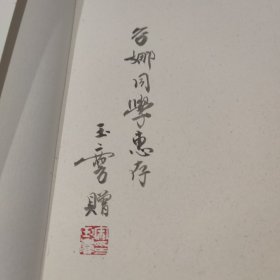 谷娜同學惠存
玉雩贈